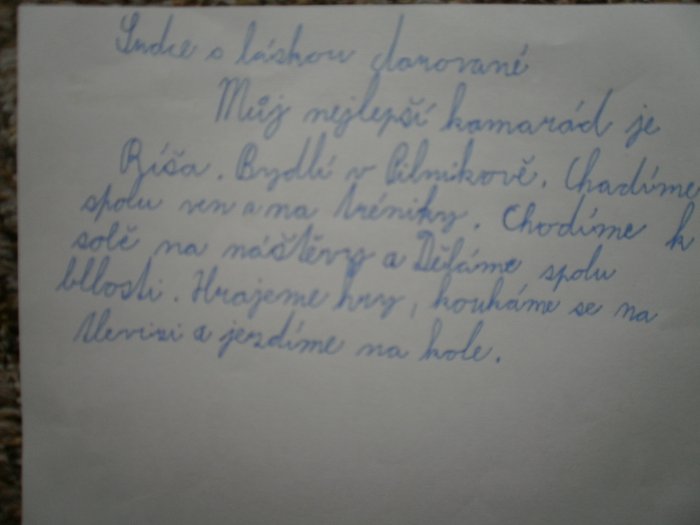 Srdce s láskou darované
Můj nejlepší kamarád je
Ríša. Bydlí v Pilnikově. Chadíme
spolu ven a na tréniky. Chodíme k
solě na náštěvy a Děláme spolu
bllosti. Hrajeme hry, koukáme se na
televizi a jezdíme na kole.